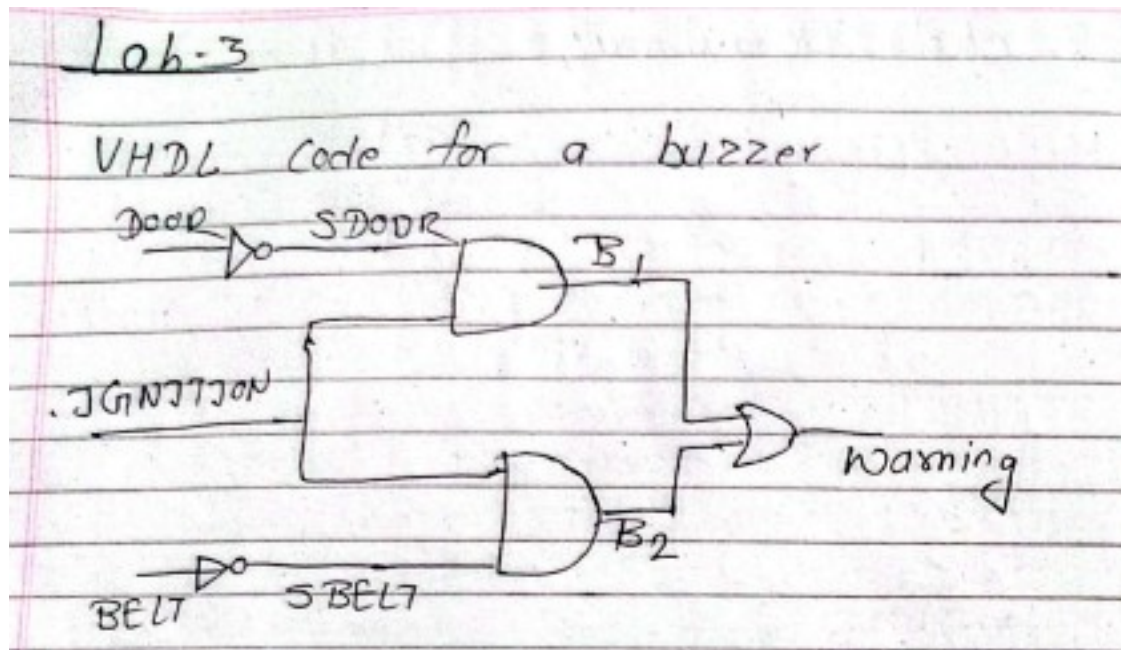 Lab-3
VHDL code for a buzzer
DOOR SDOOR B1
IGNITION
Warning
B2
BELT SBELT